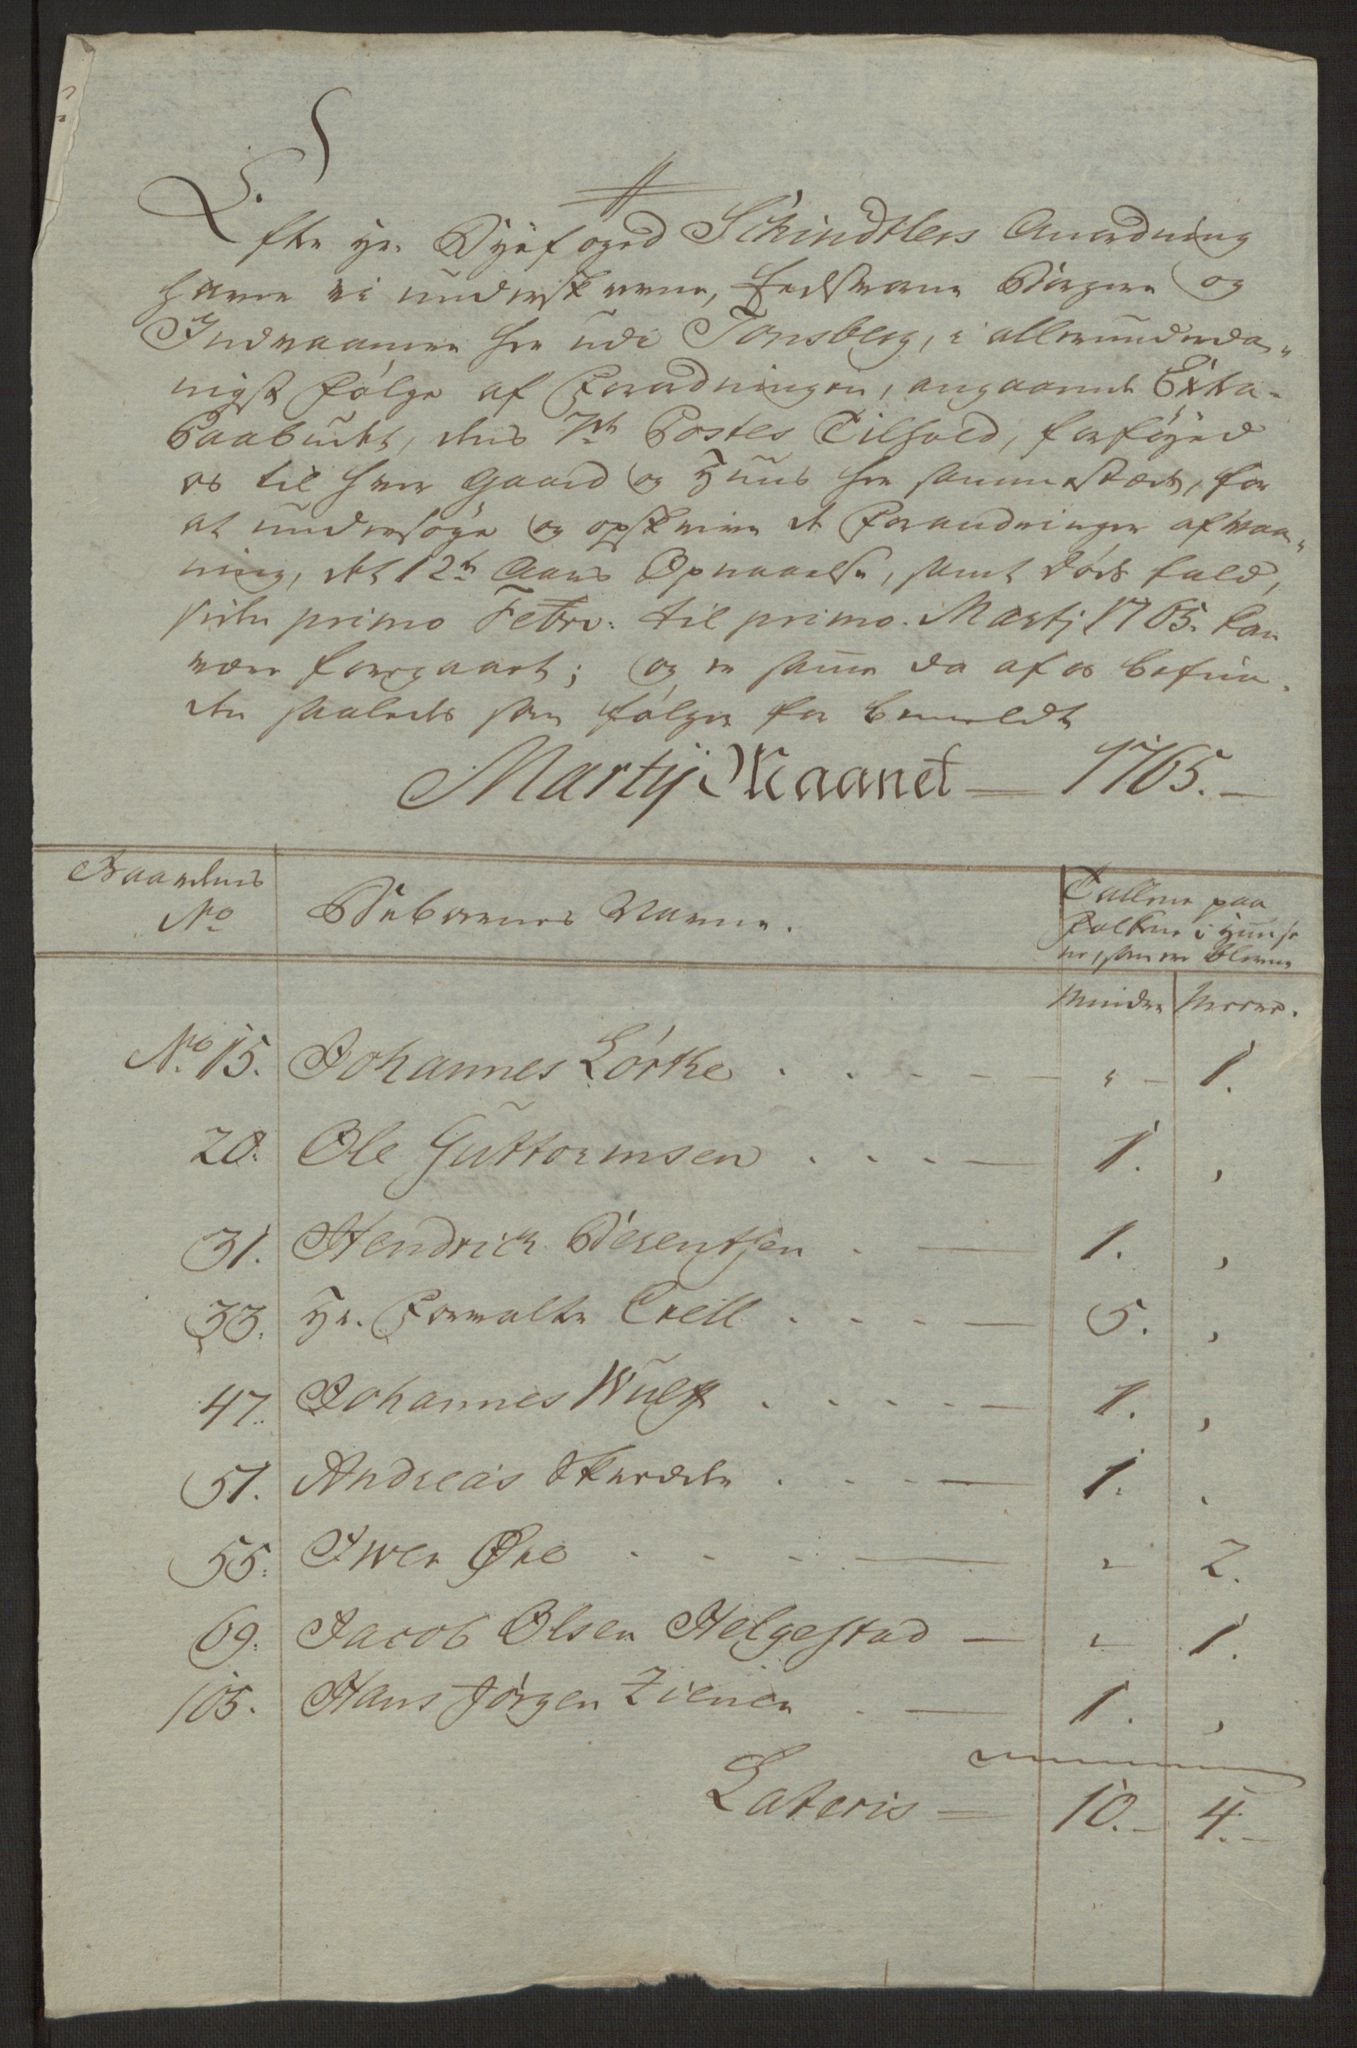 Efter Hr. Byefoged Schindtlers Anordning
haver vi underskrevne, Eedsvorne Borgere og
Indvaanere her udi Tonsberg, i allerunderda-
nigst følge af Forordningen, angaaende Extra-
Paabudet, dens 7de Postes Tilhold, forføyed
os til hver Gaard og Huus her sammestæds, for
at undersøge og opskrive de Forandringer af Vaa-
ning, det 12te Aars Opnaaelse, samt døds fald,
siden primo Febrv. til primo Martj 1765. kan
være foregaaet; og er samme da af os befun-
den saaledes som følger for bemeldte
Martij Maanet 1765.
Gaardens
No
Beboernes Navne.
Tallene paa
Folkene i Huuse
ne, som ere blevne
Minder Meerer.
No. 15. Johannes Lørtke . . . . " 1.
20. Ole Guttormsen . . . 1. ,
31. Hendrick Berentsen . 1. ,
33. Hr. Forvalter Crell . . . . 5. ,
47. Johannes Wulf . . . . . 1. ,
51. Andreas Skrædder . . . 1. .
55. Iver Øre . . . . " 2.
69. Jacob Olsen Helgestad " 1.
105. Hans Jørgen Zienen . 1. ,
Lateris 10. 4.